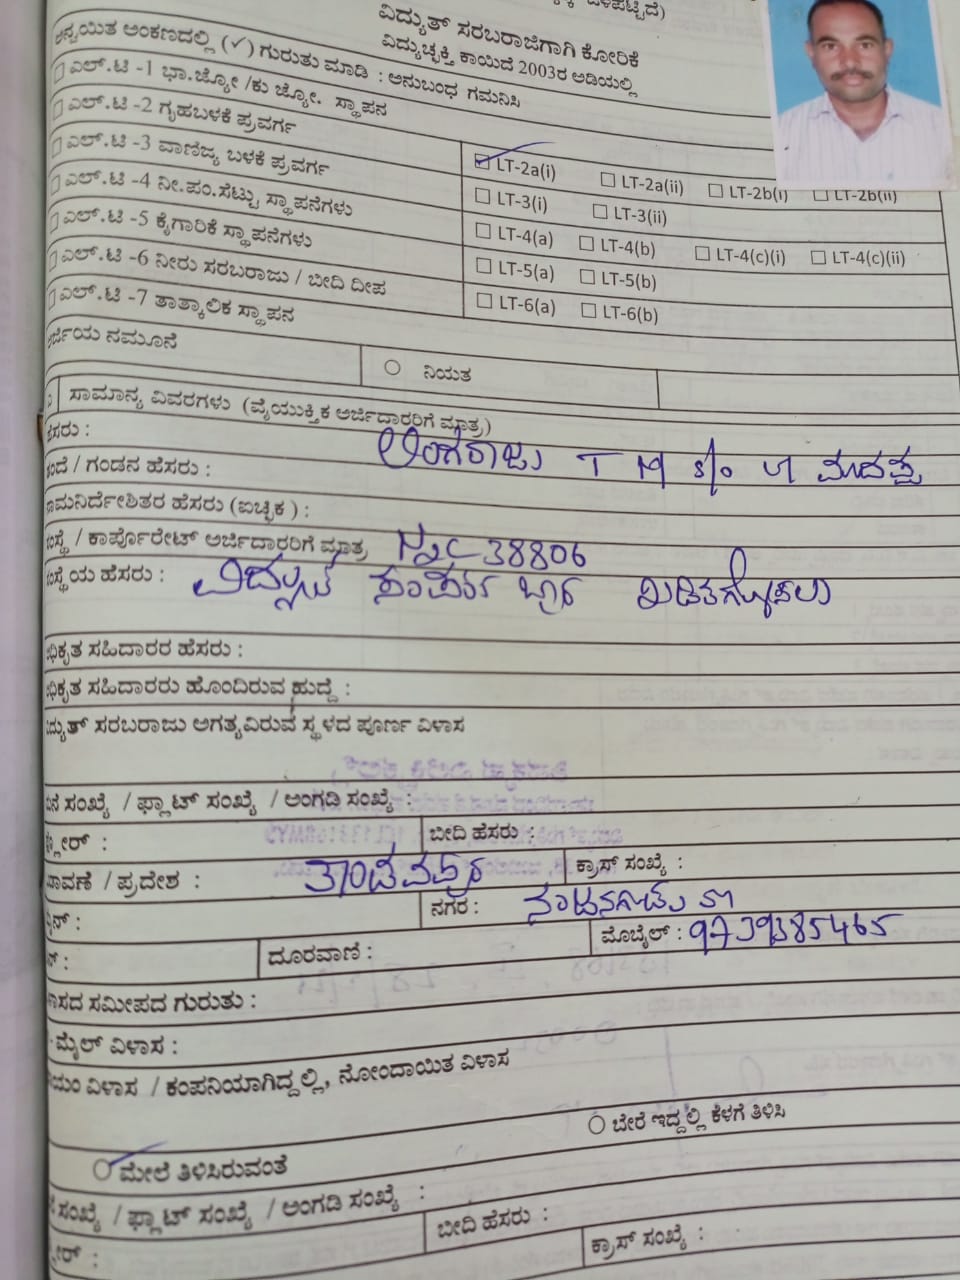 ವಿದ್ಯುತ್ ಸರಬರಾಜಿಗಾಗಿ ಕೋರಿಕೆ
ವಿದ್ಯುಚ್ಛಕ್ತಿ ಕಾಯಿದೆ 2003ರ ಅಡಿಯಲ್ಲಿ
ಅನ್ವಯಿತ ಅಂಕಣದಲ್ಲಿ (✓) ಗುರುತು ಮಾಡಿ : ಅನುಬಂಧ ಗಮನಿಸಿ
ಎಲ್.ಟಿ -1 ಭಾ.ಜ್ಯೋ /ಕು ಜ್ಯೋ. ಸ್ಥಾಪನ
ಎಲ್.ಟಿ -2 ಗೃಹಬಳಕೆ ಪ್ರವರ್ಗ ☑ LT-2a(i) ☐ LT-2a(ii) ☐ LT-2b(i) ☐ LT-2b(ii)
ಎಲ್.ಟಿ -3 ವಾಣಿಜ್ಯ ಬಳಕೆ ಪ್ರವರ್ಗ ☐ LT-3(i) ☐ LT-3(ii)
ಎಲ್.ಟಿ -4 ನೀ.ಪಂ.ಸೆಟ್ಟು ಸ್ಥಾಪನೆಗಳು ☐ LT-4(a) ☐ LT-4(b) ☐ LT-4(c)(i) ☐ LT-4(c)(ii)
ಎಲ್.ಟಿ -5 ಕೈಗಾರಿಕೆ ಸ್ಥಾಪನೆಗಳು ☐ LT-5(a) ☐ LT-5(b)
ಎಲ್.ಟಿ -6 ನೀರು ಸರಬರಾಜು / ಬೀದಿ ದೀಪ ☐ LT-6(a) ☐ LT-6(b)
ಎಲ್.ಟಿ -7 ತಾತ್ಕಾಲಿಕ ಸ್ಥಾಪನ
ಅರ್ಜಿಯ ನಮೂನೆ ○ ನಿಯತ
ಸಾಮಾನ್ಯ ವಿವರಗಳು (ವೈಯುಕ್ತಿಕ ಅರ್ಜಿದಾರರಿಗೆ ಮಾತ್ರ)
ಹೆಸರು : ಲಿಂಗರಾಜು T M s/o
ತಂದೆ / ಗಂಡನ ಹೆಸರು :
ನಾಮನಿರ್ದೇಶಿತರ ಹೆಸರು (ಐಚ್ಛಿಕ) :
ಸಂಸ್ಥೆ / ಕಾರ್ಪೊರೇಟ್ ಅರ್ಜಿದಾರರಿಗೆ ಮಾತ್ರ 38806
ಸಂಸ್ಥೆಯ ಹೆಸರು : ವಿದ್ಯುತ್
ಅಧಿಕೃತ ಸಹಿದಾರರ ಹೆಸರು :
ಅಧಿಕೃತ ಸಹಿದಾರರು ಹೊಂದಿರುವ ಹುದ್ದೆ :
ವಿದ್ಯುತ್ ಸರಬರಾಜು ಅಗತ್ಯವಿರುವ ಸ್ಥಳದ ಪೂರ್ಣ ವಿಳಾಸ
ಮನೆ ಸಂಖ್ಯೆ / ಫ್ಲಾಟ್ ಸಂಖ್ಯೆ / ಅಂಗಡಿ ಸಂಖ್ಯೆ :
ಫ್ಲೋರ್ : ಬೀದಿ ಹೆಸರು :
ಬಡಾವಣೆ / ಪ್ರದೇಶ : ತಾಂಡವಪುರ ಕ್ರಾಸ್ ಸಂಖ್ಯೆ :
ಪಿನ್ : ನಗರ : ನಂಜನಗೂಡು
ದೂರವಾಣಿ : ಮೊಬೈಲ್ : 9739385465
ವಿಳಾಸದ ಸಮೀಪದ ಗುರುತು :
ಇ-ಮೈಲ್ ವಿಳಾಸ :
ಖಾಯಂ ವಿಳಾಸ / ಕಂಪನಿಯಾಗಿದ್ದಲ್ಲಿ, ನೋಂದಾಯಿತ ವಿಳಾಸ
○ ಮೇಲೆ ತಿಳಿಸಿರುವಂತೆ ○ ಬೇರೆ ಇದ್ದಲ್ಲಿ ಕೆಳಗೆ ತಿಳಿಸಿ
ಮನೆ ಸಂಖ್ಯೆ / ಫ್ಲಾಟ್ ಸಂಖ್ಯೆ / ಅಂಗಡಿ ಸಂಖ್ಯೆ :
ಫ್ಲೋರ್ : ಬೀದಿ ಹೆಸರು :
ಕ್ರಾಸ್ ಸಂಖ್ಯೆ :